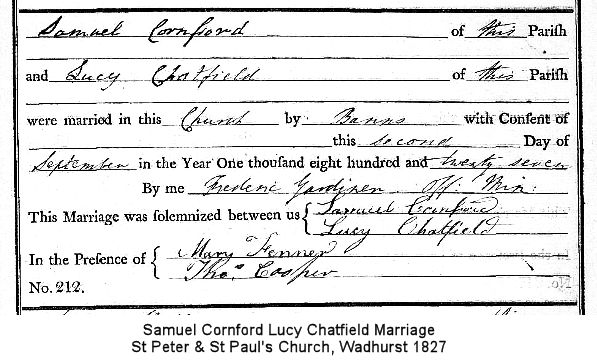 Samuel Cornford of this Pariſh
and Lucy Chatfield of this Pariſh
were married in this Church by Banns with Conſent of
this second Day of
September in the Year One thouſand eight hundred and twenty seven
By me Frederic Gardiner Off: Min:
This Marriage was ſolemnized between us { Samuel Cornford
Lucy Chatfield
In the Preſence of { Mary Fenner
Thos. Cooper
No. 212.
Samuel Cornford Lucy Chatfield Marriage
St Peter & St Paul's Church, Wadhurst 1827